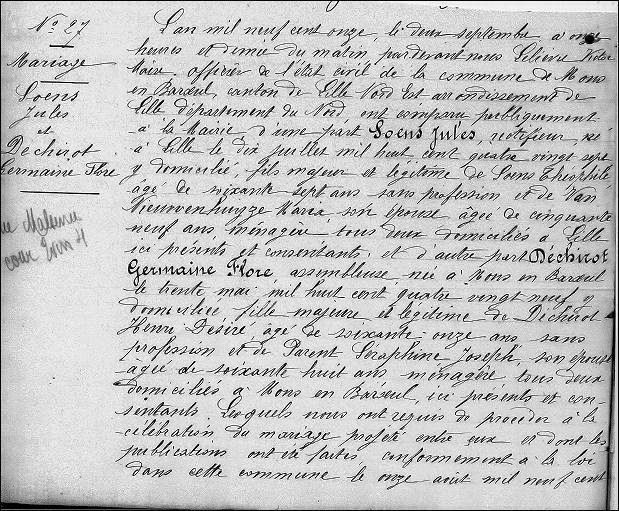 N° 27
Mariage
Soens
Jules
et
Déchirot
Germaine Flore
L'an mil neuf cent onze, le deux septembre à onze
heures et demie du matin par devant nous Lelièvre
Maire, officier de l'état civil de la commune de Mons
en Barœul, canton de Lille Nord Est arrondissement de
Lille, département du Nord, ont comparu publiquement
à la Mairie, d'une part Soens Jules, rectifieur, né
à Lille le dix juillet mil huit cent quatre vingt sept
y domicilié, fils majeur et légitime de Soens Théophile
âgé de soixante sept ans sans profession et de Van
Maria, son épouse âgée de cinquante
neuf ans, ménagère tous deux domiciliés à Lille
ici présents et consentants; et d'autre part Déchirot
Germaine Flore assembleuse, née à Mons en Barœul
le trente mai mil huit cent quatre vingt neuf y
domiciliée, fille majeure et légitime de Déchirot
Henri Désiré âgé de soixante-onze ans, sans
profession et de Parent Séraphine Joseph, son épouse
âgée de soixante huit ans ménagère, tous deux
domiciliés à Mons en Barœul, ici présents et con-
sentants. Lesquels nous ont requis de procéder à la
célébration du mariage projeté entre eux et dont les
publications ont été faites conformément à la loi
dans cette commune le onze août mil neuf cent